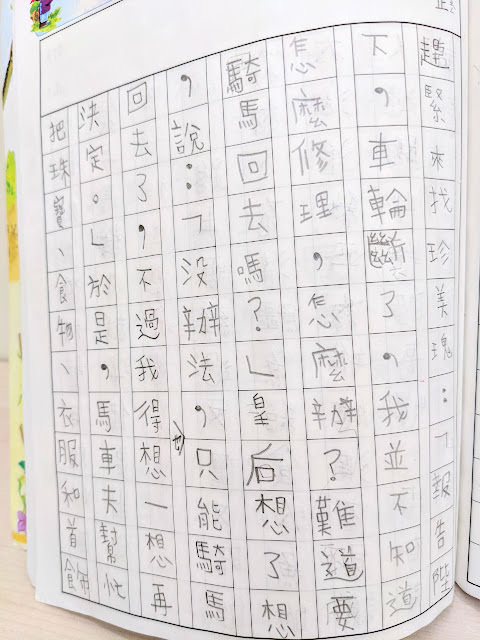 趕緊來找珍美瑰：「報告陛
下，車輪斷了，我並不知道
怎麼修理，怎麼辦？難道要
騎馬回去嗎？」皇后想了想
，說：「沒辦法，只能騎馬
回去了，不過我得想一想再
決定。」於是，馬車夫幫忙
把珠寶、食物、衣服和首飾